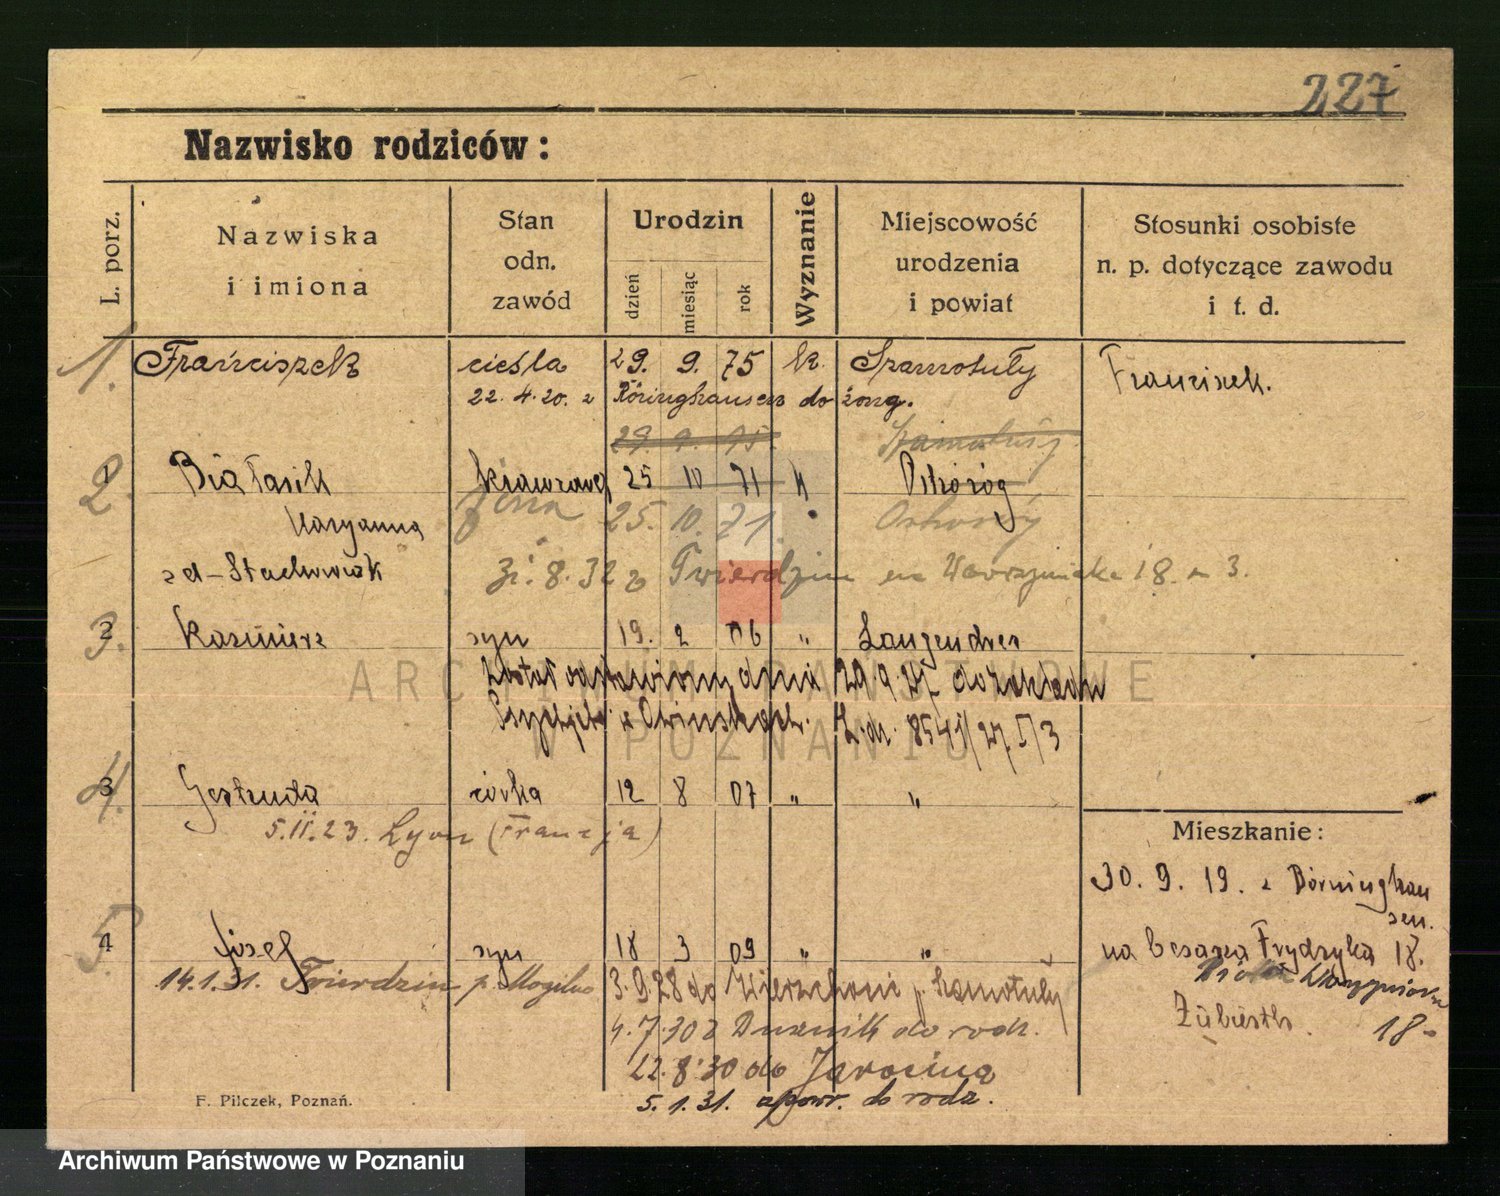 227
Nazwisko rodziców :
L. porz.
Nazwiska
i imiona
Stan
odn.
zawód
Urodzin
dzień
miesiąc
rok
Wyznanie
Miejscowość
urodzenia
i powiat
Stosunki osobiste
n. p. dotyczące zawodu
i t. d.
1. Franciszek cieśla 29. 9. 75 kr. Szamotuły Franciszek.
22. 4. 20. z Röninghausen do żony.
29. 9. 75. Szamotuły
2. 1 Białasik krawcową 25 10 71 " Ostroróg
Maryanna żona 25. 10. 71. Ostroróg
zd - Stachowiak 31. 8. 32 z Twierdzin na Wawrzyniaka 18 m 3.
3. 2 Kazimierz syn 19. 2 06 " Langendreer
Został odstawiony dnia 29.9.27 do zakładu
Psychjatr. w Owińskach. L.dz. 8541/27 I/3
4. 3 Gertruda córka 12 8 07 " "
5.II.23. Lyon (Francja)
Mieszkanie:
30. 9. 19. z Börninghau
sen.
5. 4 Józef syn 18 3 09 " "
na Cesarza Frydryka 18.
14.1.31. Twierdzin p. Mogilno 3.9.28 do p. Szamotuły
Wawrzyniaka
18
4.7.30 z Duszník do rodz.
22.8.30 do Jarocina
5.1.31. z powr. do rodz.
F. Pilczek, Poznań.
ARCHIWUM PAŃSTWOWE
W POZNANIU
Archiwum Państwowe w Poznaniu